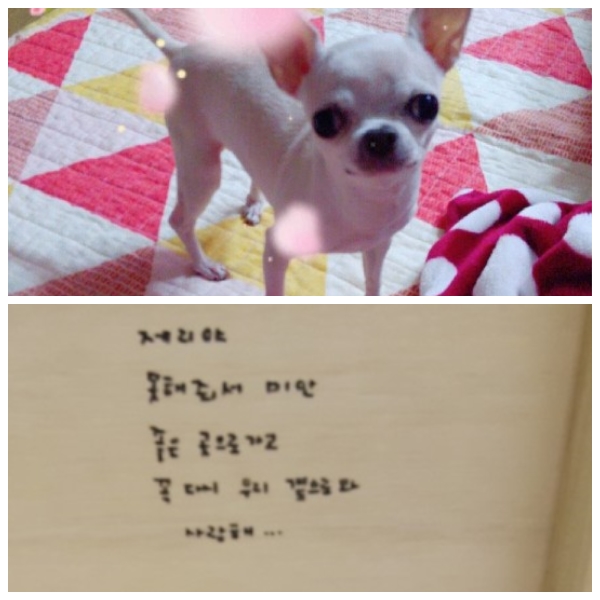 제리야
못해줘서 미안
좋은 곳으로가고
꼭 다시 우리 곁으로 와
사랑해...